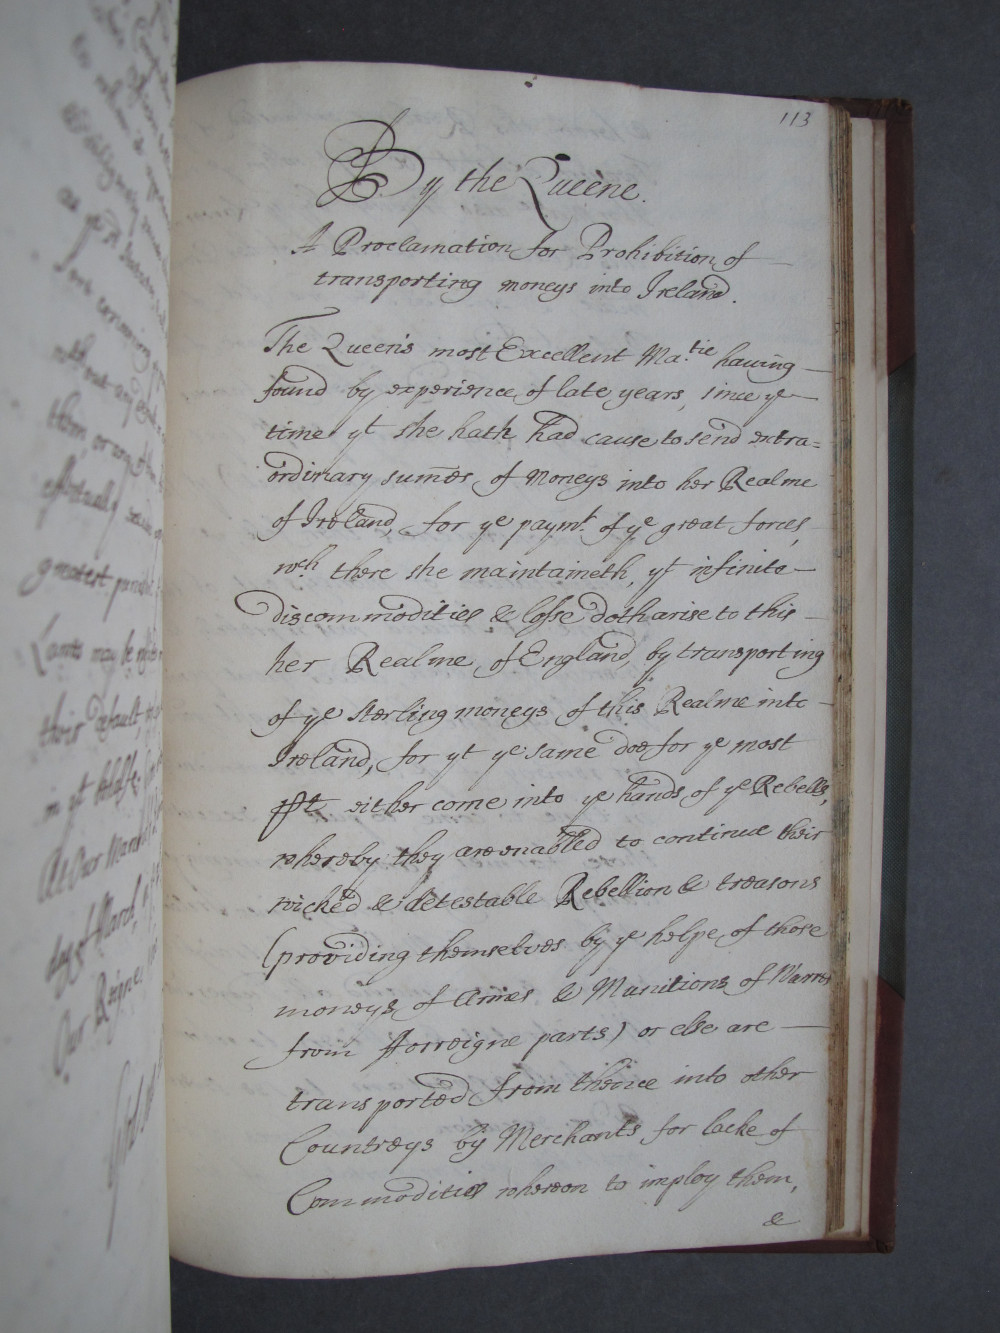 113
By the Queene.
A Proclamation for Prohibition of
transporting moneys into Ireland.
The Queens most Excellent Ma.tie having
found by experience of late years, since ye
time yt she hath had cause to send extra=
ordinary sumes of Moneys into her Realme
of Ireland, for ye paymt. of ye great forces,
wch there she maintaineth, yt infinite
discommodities & losse doth arise to this
her Realme of England, by transporting
of ye sterling moneys of this Realme into
Ireland, for yt ye same doe for ye most
pt. either come into ye hands of ye Rebells,
whereby they are enabled to continue their
wicked & detestable Rebellion & treasons
(providing themselves by ye helpe of those
moneys of Armes & Munitions of Warre
from fforreigne parts) or else are
transported from thence into other
Countreys by Merchants for lacke of
Commodities whereon to imploy them,
&
greatest
Lants may be
their default,
day of March,
Our Reigne